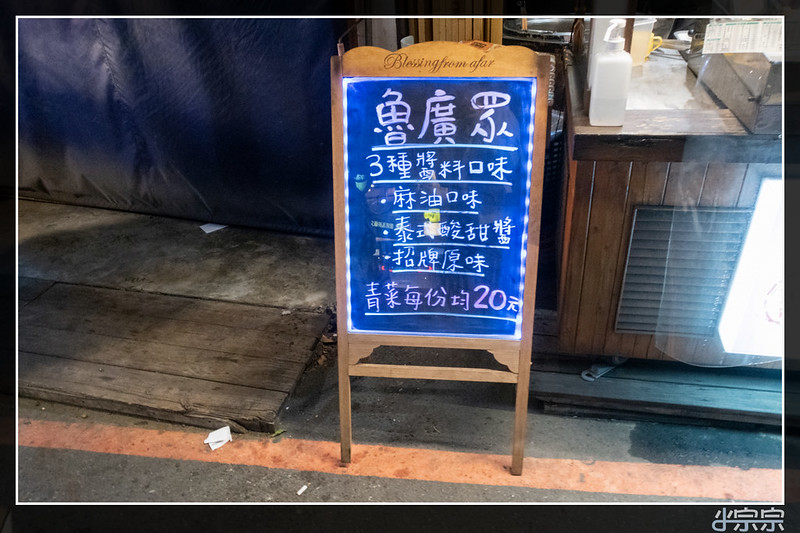 Blessing from afar
魯廣眾
3種醬料口味
·麻油口味
·泰式酸甜醬
·招牌原味
青菜每份均20元
小宗宗